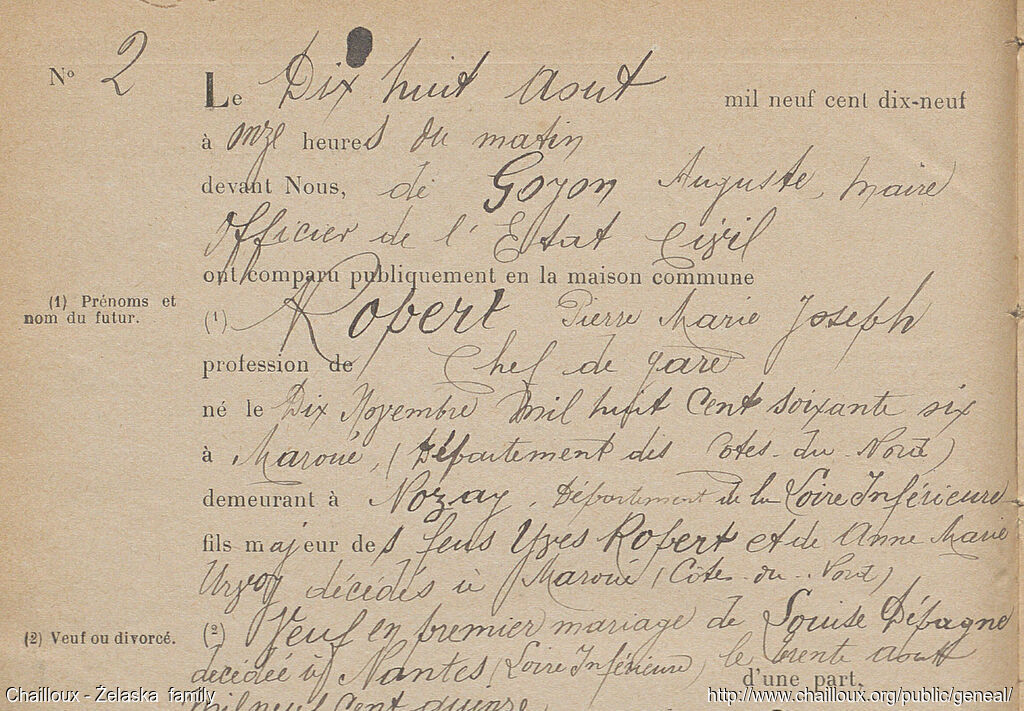 N° 2
Le Dix huit Aout mil neuf cent dix-neuf
à onze heures du matin
devant Nous, de Goyon Auguste, Maire
Officier de l'Etat Civil
ont comparu publiquement en la maison commune
(1) Prénoms et
nom du futur.
(1) Robert Pierre Marie Joseph
profession de Chef de gare
né le Dix Novembre Mil huit Cent soixante six
à Maroué, (Département des Côtes-du-Nord)
demeurant à Nozay, Département de la Loire Inférieure
fils majeur des feus Yves Robert et de Anne Marie
Urvoy décédés à Maroué (Côtes-du-Nord)
(2) Veuf ou divorcé.
(2) Veuf en premier mariage de Louise Débagne
décédée à Nantes (Loire Inférieure) le trente aout
d'une part,
Mil neuf Cent quinze
Chailloux - Żelaska family
http://www.chailloux.org/public/geneal/